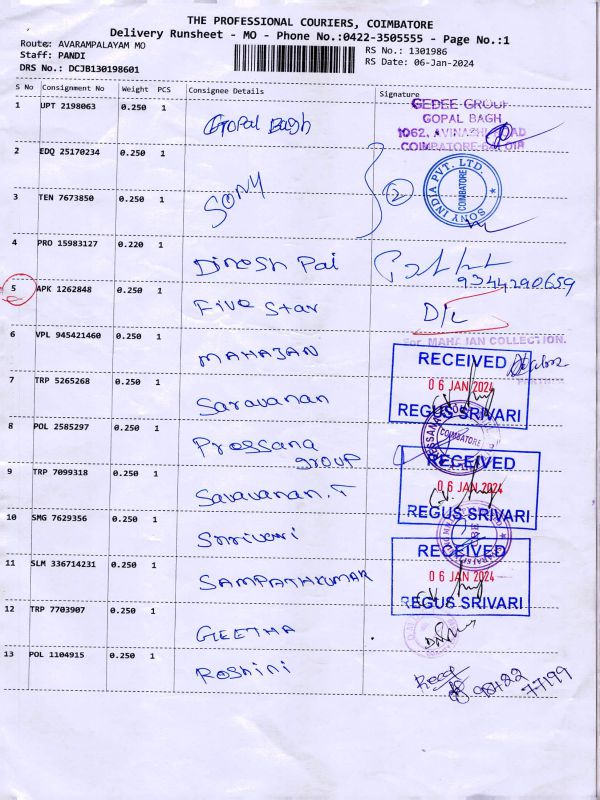 THE PROFESSIONAL COURIERS, COIMBATORE
Delivery Runsheet - MO - Phone No.:0422-3505555 - Page No.:1
Route: AVARAMPALAYAM MO
RS No.: 1301986
Staff: PANDI
RS Date: 06-Jan-2024
DRS No.: DCJB130198601
S No Consignment No Weight PCS Consignee Details Signature
1 UPT 2198063 0.250 1 Gopal Bagh
GEDEE GROUP
GOPAL BAGH
1062, AVINASHI ROAD
COIMBATORE
2 EDQ 25170234 0.250 1
SONY INDIA PVT. LTD.
COIMBATORE
2
3 TEN 7673850 0.250 1 SONY
4 PRO 15983127 0.220 1 Dinesh Pai
9344290659
5 APK 1262848 0.250 1 Five Star D/L
6 VPL 945421460 0.250 1 MAHAJAN
For MAHAJAN COLLECTION.
RECEIVED
06 JAN 2024
REGUS SRIVARI
7 TRP 5265268 0.250 1 Saravanan
8 POL 2585297 0.250 1 Prossana
group
COIMBATORE
RECEIVED
06 JAN 2024
REGUS SRIVARI
9 TRP 7099318 0.250 1 Saravanan.T
10 SMG 7629356 0.250 1 Srrivari
RECEIVED
06 JAN 2024
REGUS SRIVARI
11 SLM 336714231 0.250 1 SAMPATHKUMAR
12 TRP 7703907 0.250 1 GEETHA
13 POL 1104915 0.250 1 Roshini
98422
77199